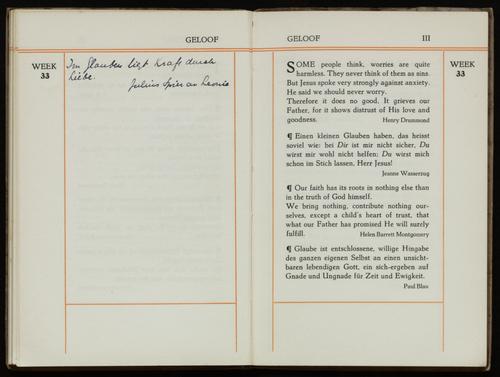 GELOOF
WEEK
33
Im Glauben liegt Kraft durch
Liebe.
Julius Spier an Leonie
GELOOF III
WEEK
33
SOME people think, worries are quite
harmless. They never think of them as sins.
But Jesus spoke very strongly against anxiety.
He said we should never worry.
Therefore it does no good. It grieves our
Father, for it shows distrust of His love and
goodness. Henry Drummond
¶ Einen kleinen Glauben haben, das heisst
soviel wie: bei Dir ist mir nicht sicher, Du
wirst mir wohl nicht helfen; Du wirst mich
schon im Stich lassen, Herr Jesus!
Jeanne Wasserzug
¶ Our faith has its roots in nothing else than
in the truth of God himself.
We bring nothing, contribute nothing our-
selves, except a child's heart of trust, that
what our Father has promised He will surely
fulfill. Helen Barrett Montgomery
¶ Glaube ist entschlossene, willige Hingabe
des ganzen eigenen Selbst an einen unsicht-
baren lebendigen Gott, ein sich-ergeben auf
Gnade und Ungnade für Zeit und Ewigkeit.
Paul Blau